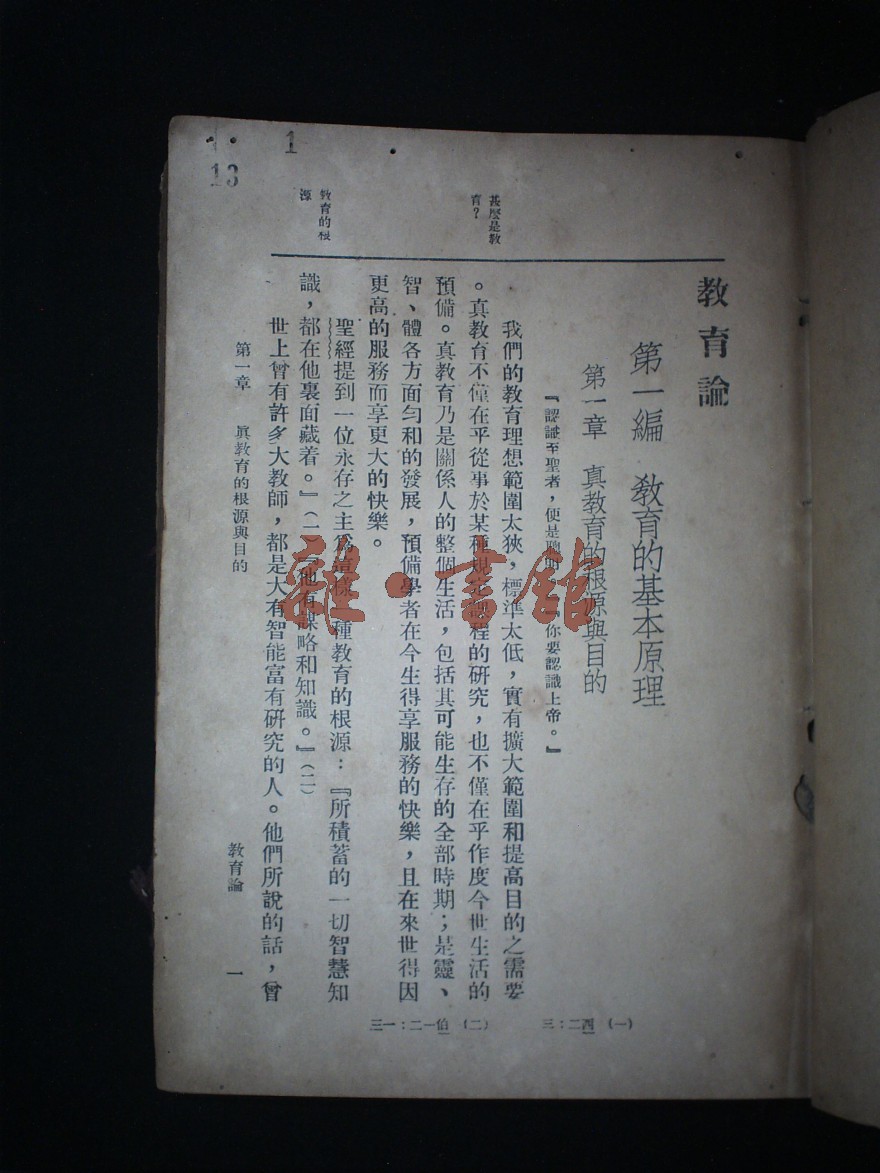 1
13
教育論
第一編　教育的基本原理
第一章　真教育的根源與目的
『認識至聖者，便是聰明。』『你要認識上帝。』
甚麼是教
育？
我們的教育理想範圍太狹，標準太低，實有擴大範圍和提高目的之需要
。真教育不僅在乎從事於某種規定課程的研究，也不僅在乎作度今世生活的
預備。真教育乃是關係人的整個生活，包括其可能生存的全部時期；是靈、
智、體各方面勻和的發展，預備學者在今生得享服務的快樂，且在來世得因
更高的服務而享更大的快樂。
教育的根
源
聖經提到一位永存之主為這樣一種教育的根源：『所積蓄的一切智慧知
識，都在他裏面藏着。』(一)『他有謀略和知識。』(二)
世上曾有許多大教師，都是大有智能富有研究的人。他們所說的話，曾
(一) 西二：三
(二) 伯一二：一三
第一章　眞教育的根源與目的
教育論　一
雜·書館